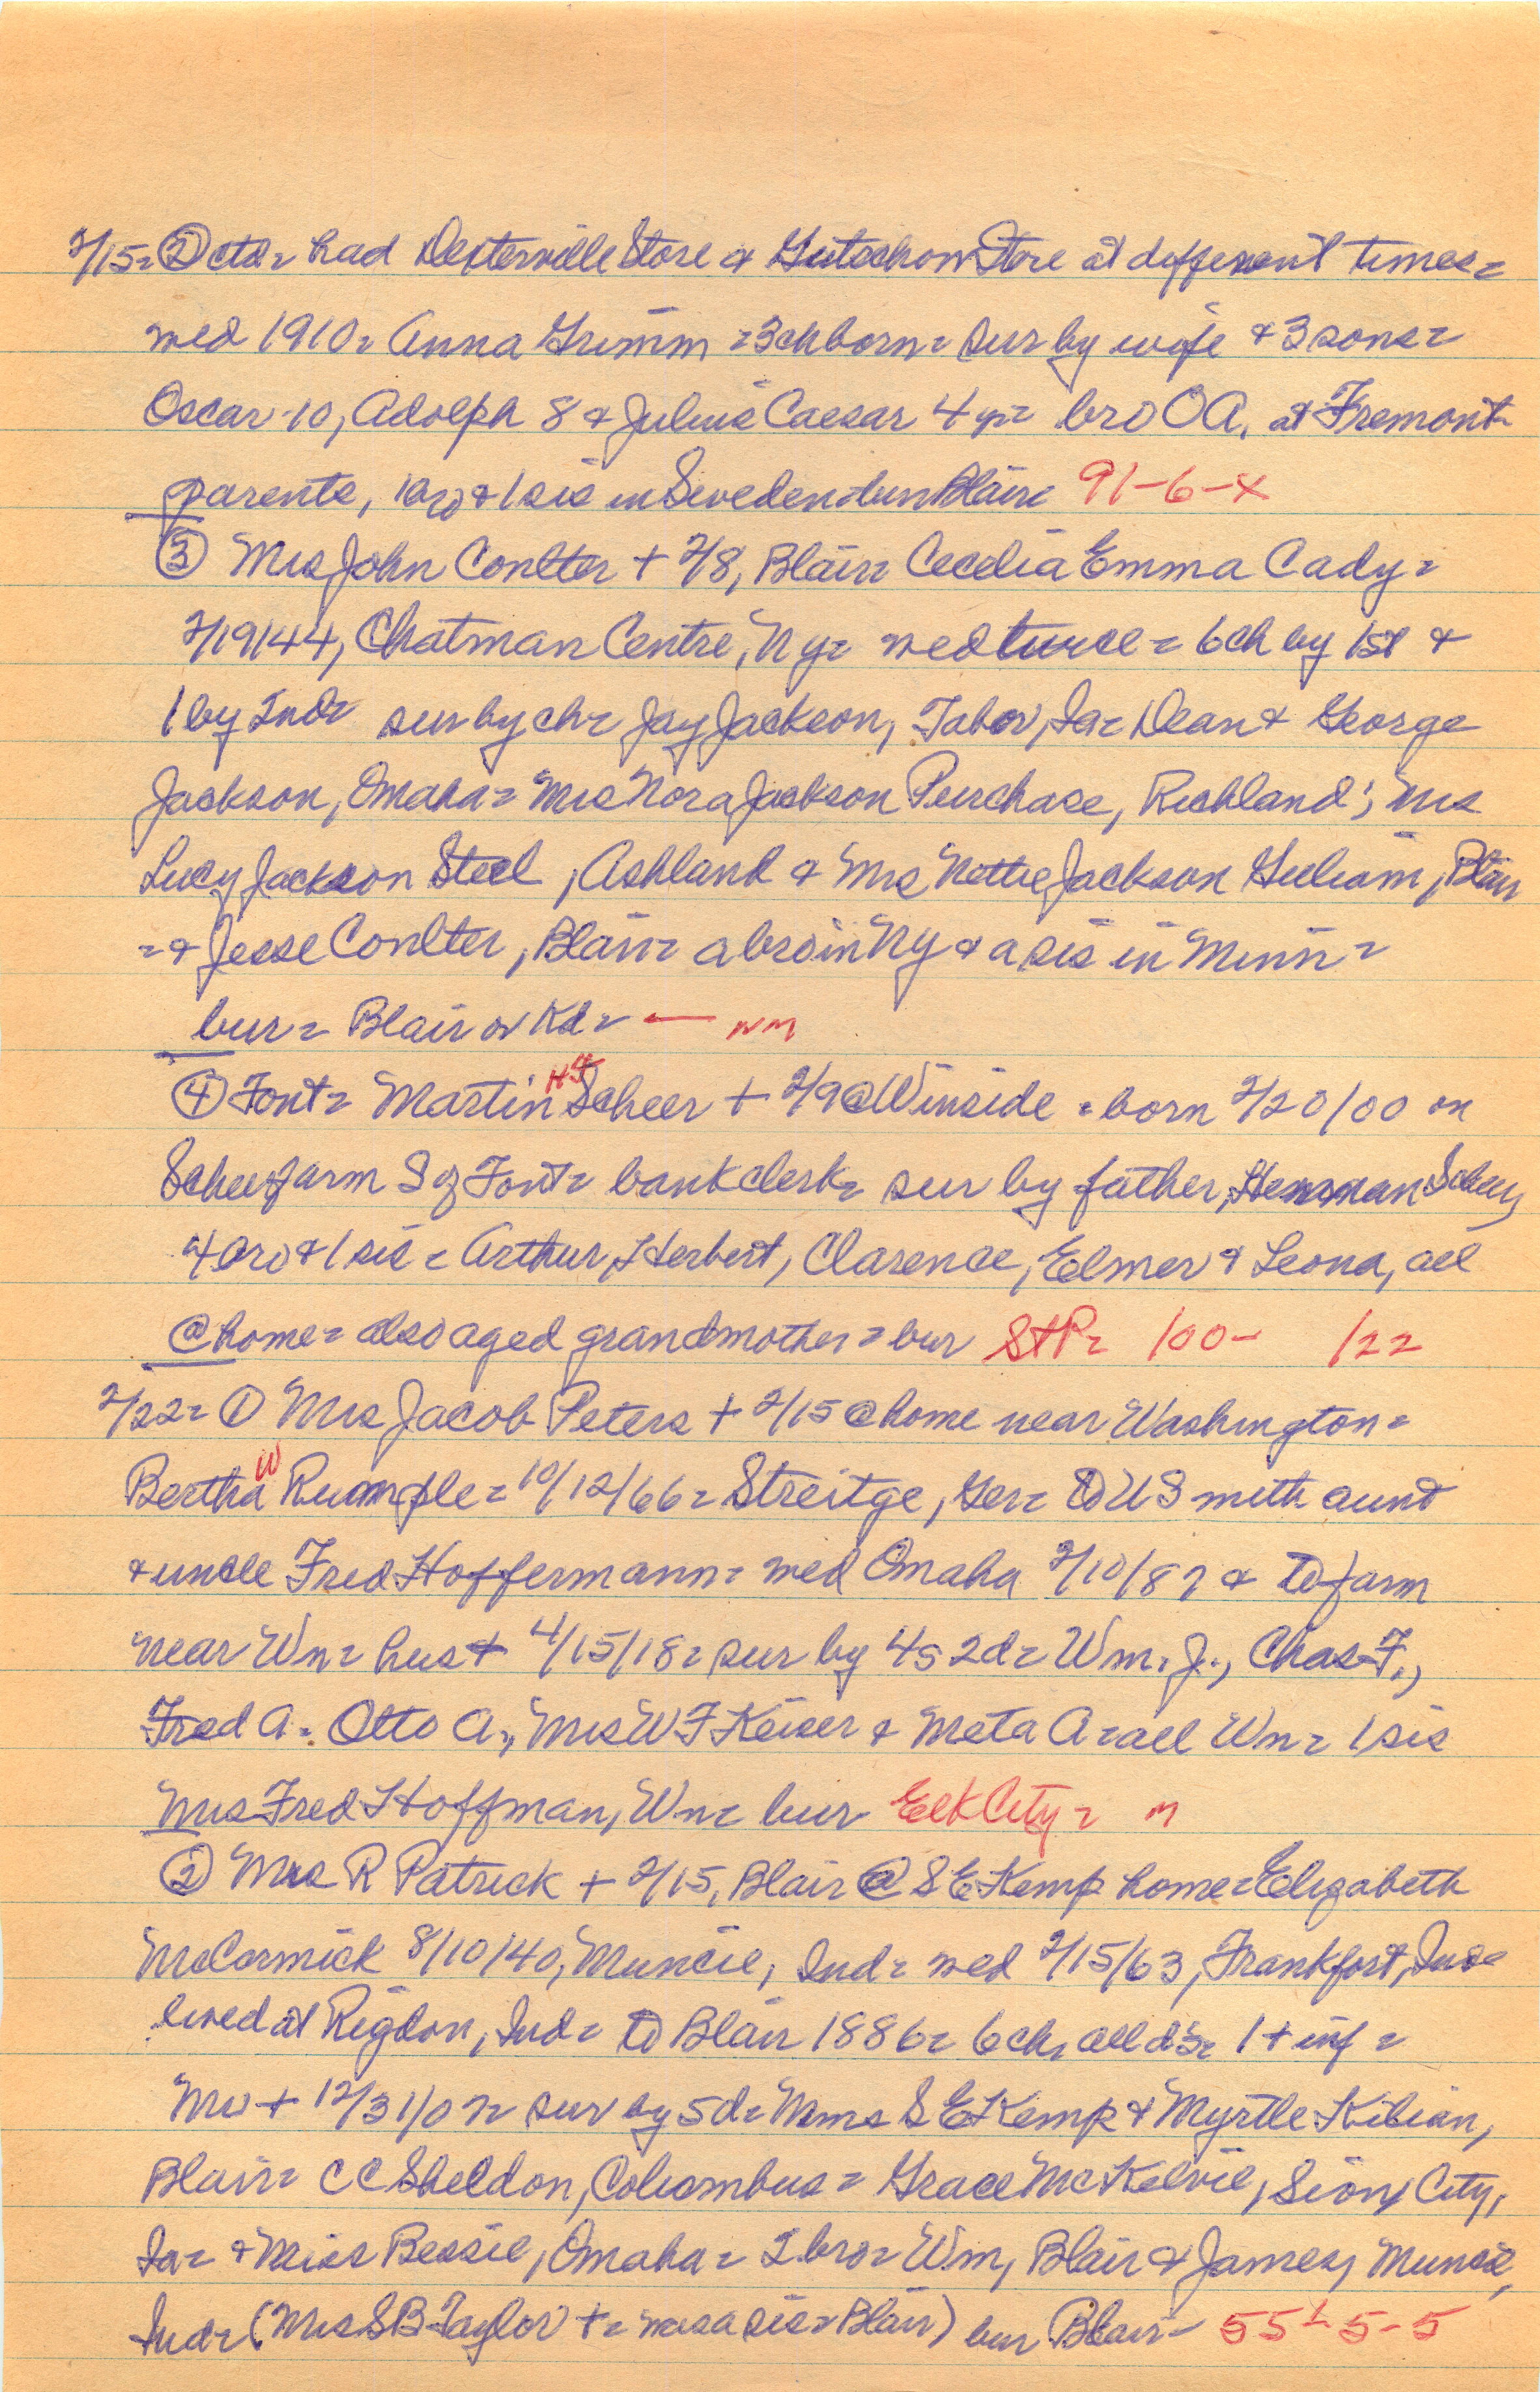 2/15= ② ctd= had Dexterville Store & Gutschow Store at different times=
wed 1910= Anna Grimm =3ch born= sur by wife & 3 sons=
Oscar 10, Adolph 8 & Julius Caesar 4 yr= bro O A. at Fremont-
parents, 1 bro & 1 sis in Sweden=bur Blair= 91-6-x
③ Mrs John Coulter + 2/8, Blair= Cecelia Emma Cady=
2/19/44, Chatman Centre, N y= wed twice = 6 ch by 1st &
1 by 2nd= sur by ch= Jay Jackson, Tabor, Ia= Dean & George
Jackson, Omaha= Mrs Nora Jackson Purchase, Richland; Mrs
Lucy Jackson Steel, Ashland & Mrs Nettie Jackson Guliam, Blair
= & Jesse Coulter, Blair= a bro in NY & a sis in Minn=
bur= Blair or Kd= — NM
④ Font= Martin HF Scheer + 2/9 @ Winside = born 2/20/00 on
Scheer farm S of Font= bank clerk= sur by father, Herman Scheer,
4 bro & 1 sis = Arthur, Herbert, Clarence, Elmer & Leona, all
@ home= also aged grandmother= bur StP= 100- 122
2/22= ① Mrs Jacob Peters + 2/15 @ home near Washington=
Bertha W Rumple= 10/12/66= Streitge, Ger= to US with aunt
& uncle Fred Hoffermann= wed Omaha 2/10/87 & to farm
near Wn= hus + 4/15/18= sur by 4s 2d= Wm. J., Chas F.,
Fred A. Otto A., Mrs W F Keiser & Meta A= all Wn= 1 sis
Mrs Fred Hoffman, Wn= bur Elk City= m
② Mrs R Patrick + 2/15, Blair @ S E Kemp home= Elizabeth
McCormick 8/10/40, Muncie, Ind= wed 2/15/63, Frankfort, Ind=
lived at Rigdon, Ind= to Blair 1886= 6 ch, all d's= 1 + inf =
Mr + 12/31/07= sur by 5d= Mmes S E Kemp & Myrtle Kilian,
Blair= C C Sheldon, Columbus= Grace McKelvie, Sioux City,
Ia= & Miss Bessie, Omaha= 2 bro= Wm, Blair & James, Muncie,
Ind= (Mrs S B Taylor += was a sis= Blair) bur Blair- 55-5-5